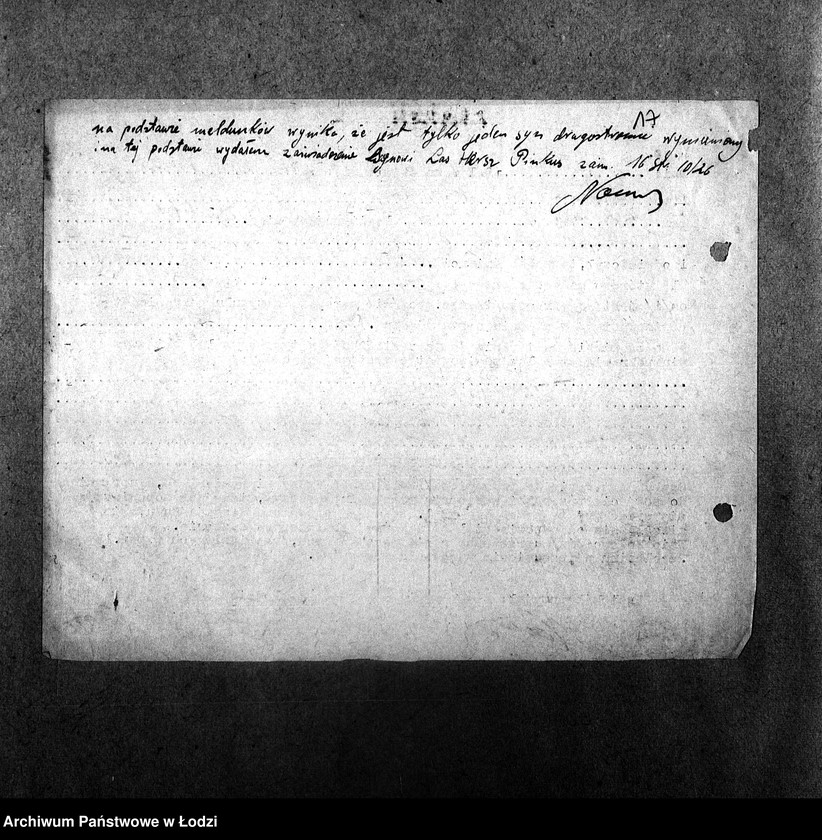 17
na podstawie meldunków wynika, że jest tylko jeden syn drugostronnie wymieniony
i na tej podstawie wydałem zaświadczenie Las Hersz Pinkus zam. 16 10/26
Archiwum Państwowe w Łodzi